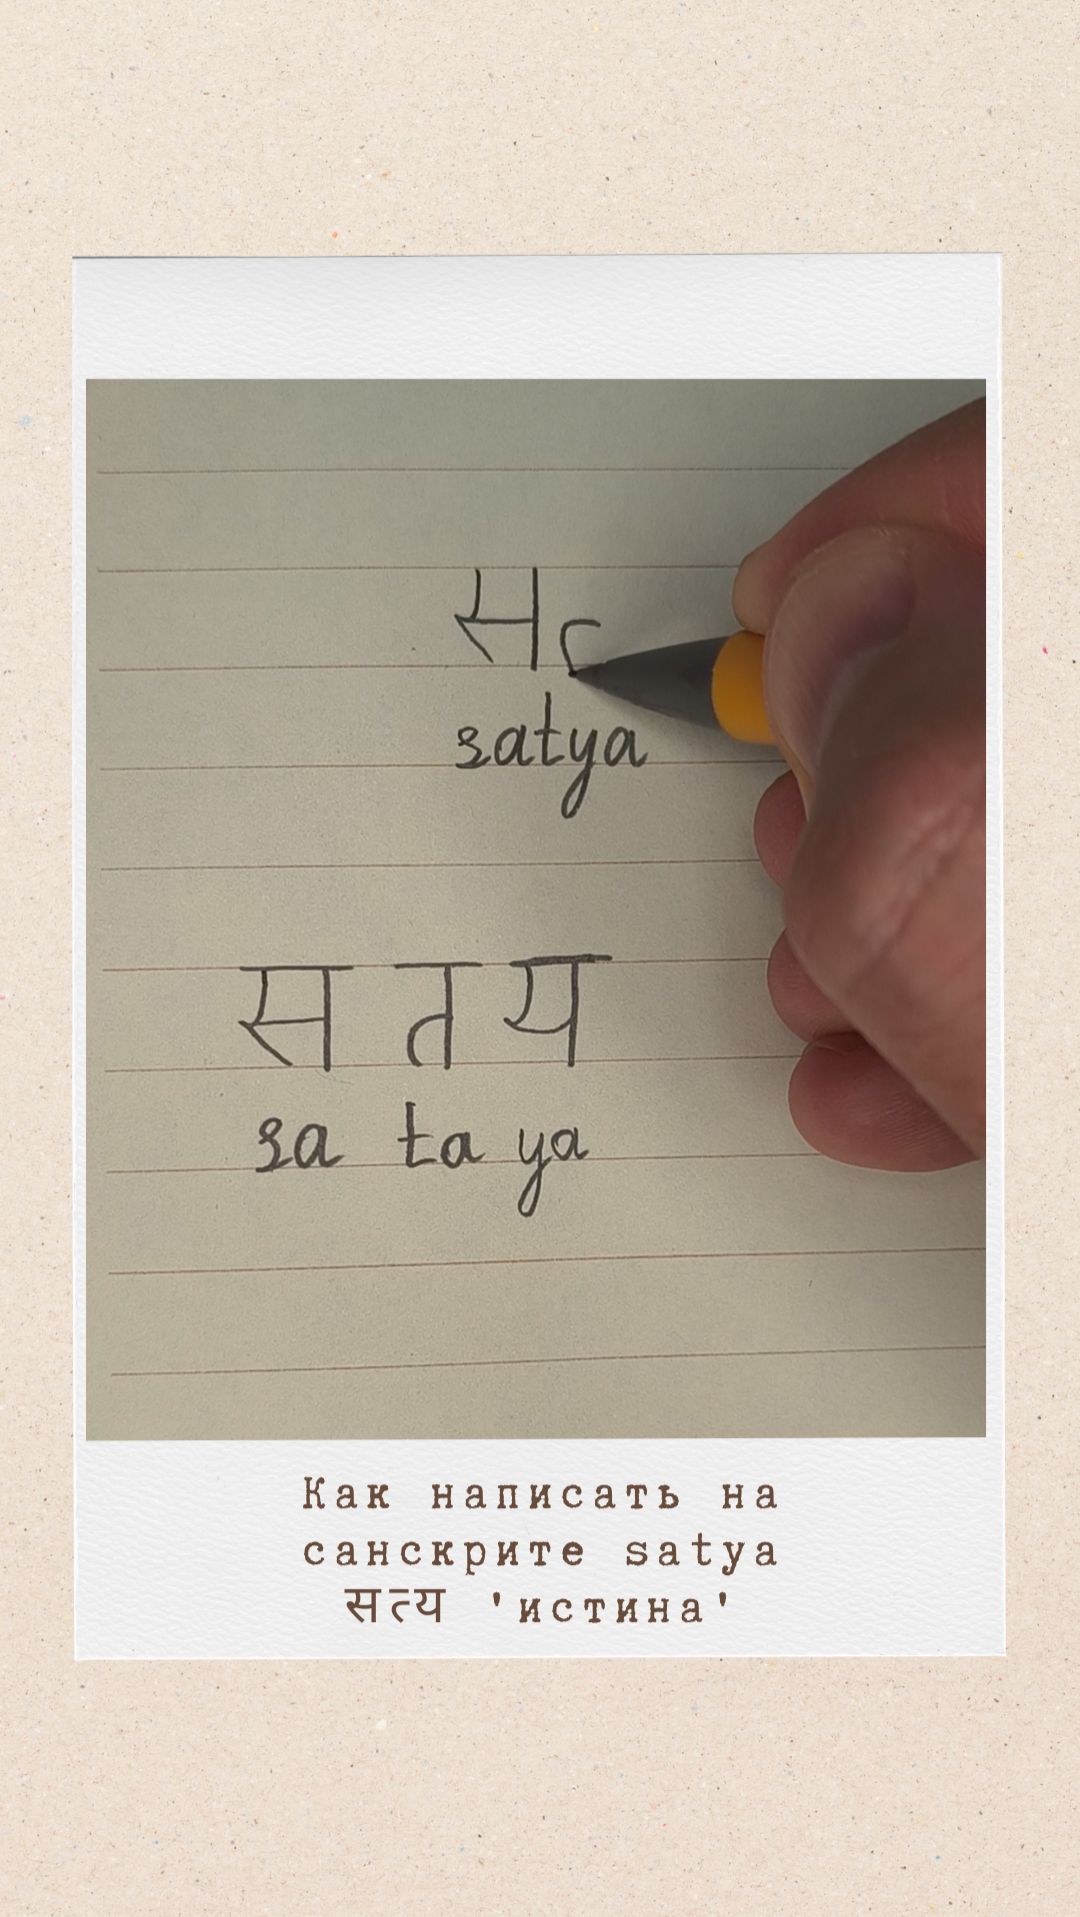 स
satya
स त य
sa ta ya
Как написать на
санскрите satya
सत्य 'истина'